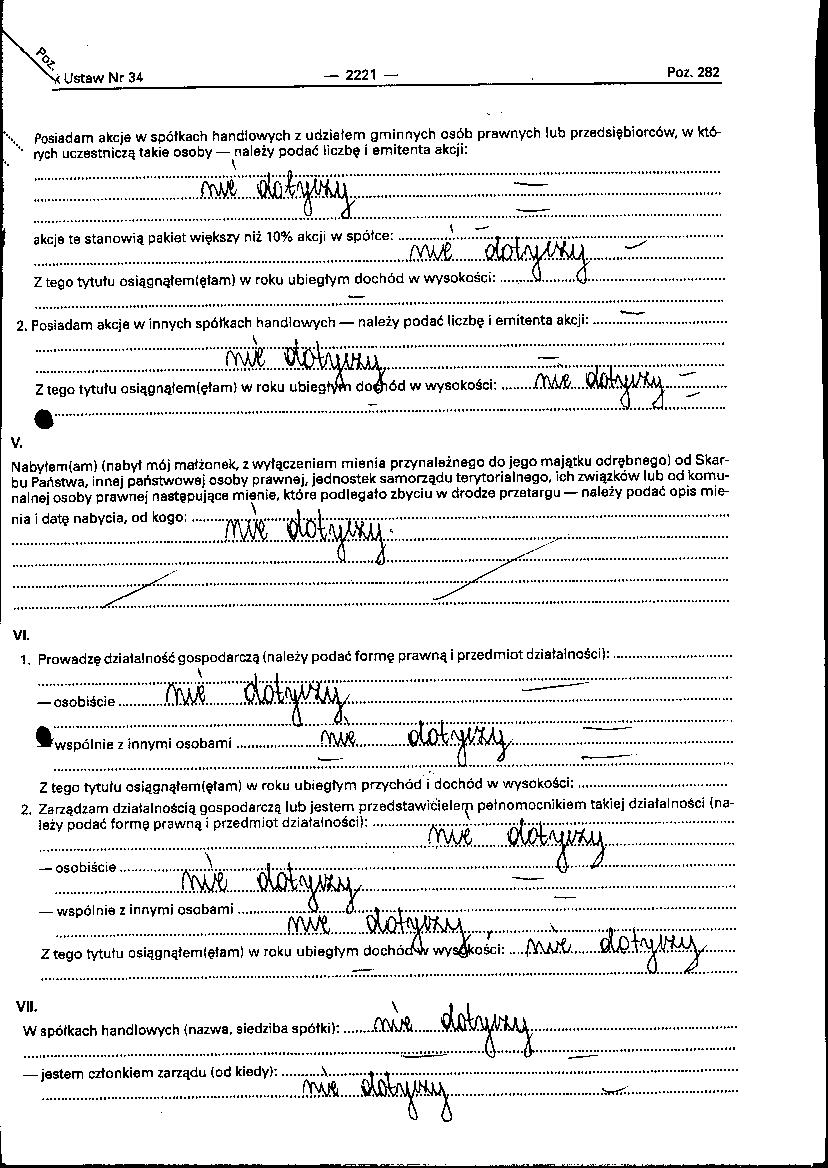 Poz.
Ustaw Nr 34 — 2221 — Poz. 282
Posiadam akcje w spółkach handlowych z udziałem gminnych osób prawnych lub przedsiębiorców, w któ-
rych uczestniczą takie osoby — należy podać liczbę i emitenta akcji:
nie dotyczy
akcje te stanowią pakiet większy niż 10% akcji w spółce:
nie dotyczy
Z tego tytułu osiągnąłem(ęłam) w roku ubiegłym dochód w wysokości:
2. Posiadam akcje w innych spółkach handlowych — należy podać liczbę i emitenta akcji:
nie dotyczy
Z tego tytułu osiągnąłem(ęłam) w roku ubiegłym dochód w wysokości: nie dotyczy
V.
Nabyłem(am) (nabył mój małżonek, z wyłączeniem mienia przynależnego do jego majątku odrębnego) od Skar-
bu Państwa, innej państwowej osoby prawnej, jednostek samorządu terytorialnego, ich związków lub od komu-
nalnej osoby prawnej następujące mienie, które podlegało zbyciu w drodze przetargu — należy podać opis mie-
nia i datę nabycia, od kogo: nie dotyczy.
VI.
1. Prowadzę działalność gospodarczą (należy podać formę prawną i przedmiot działalności):
— osobiście nie dotyczy
— wspólnie z innymi osobami nie dotyczy
Z tego tytułu osiągnąłem(ęłam) w roku ubiegłym przychód i dochód w wysokości:
2. Zarządzam działalnością gospodarczą lub jestem przedstawicielem pełnomocnikiem takiej działalności (na-
leży podać formę prawną i przedmiot działalności):
nie dotyczy
— osobiście
nie dotyczy
— wspólnie z innymi osobami
nie dotyczy
Z tego tytułu osiągnąłem(ęłam) w roku ubiegłym dochód w wysokości: nie dotyczy
VII.
W spółkach handlowych (nazwa, siedziba spółki): nie dotyczy
— jestem członkiem zarządu (od kiedy):
nie dotyczy